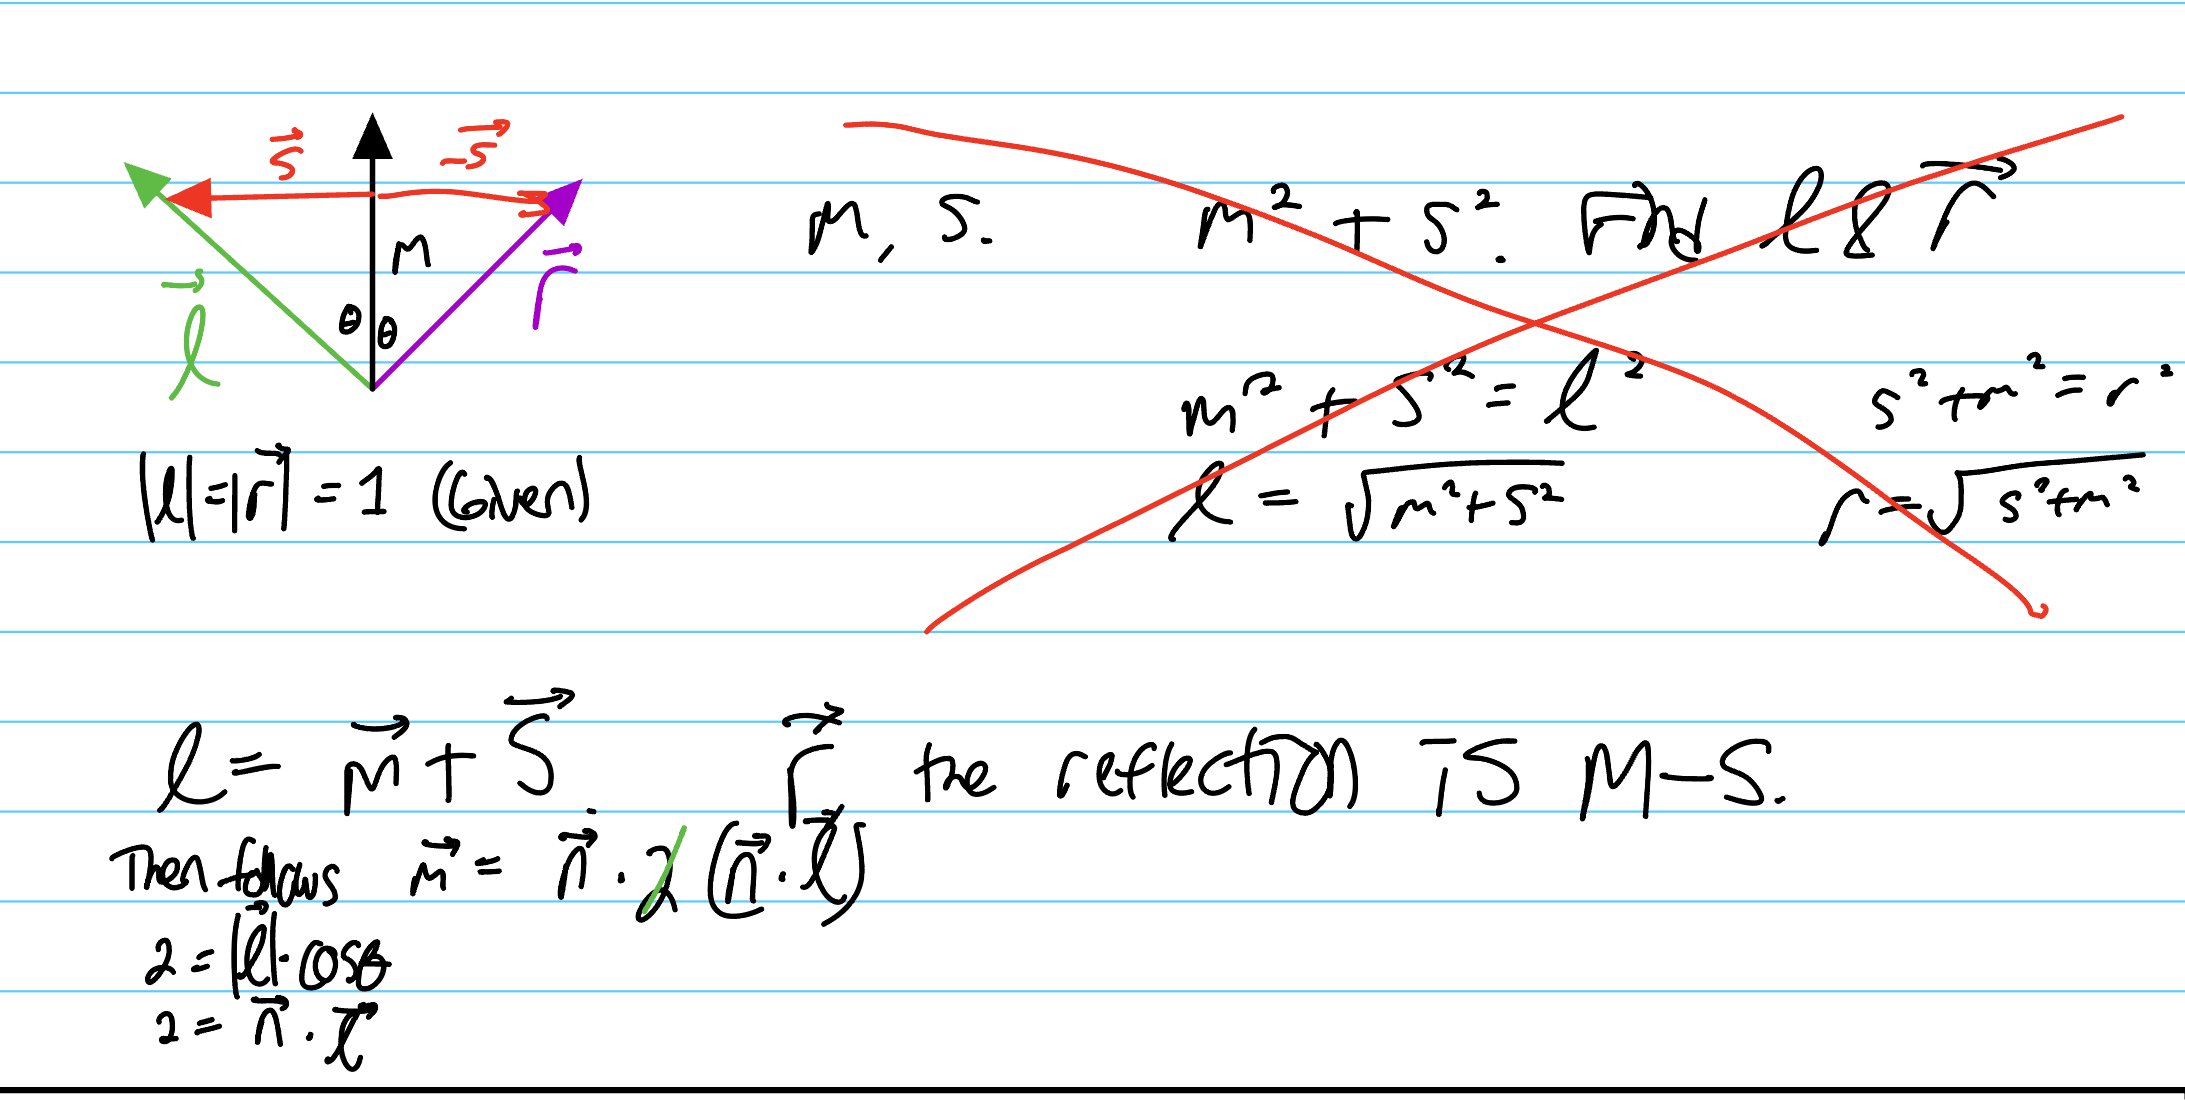 s⃗ -s⃗
M
l⃗ θ θ r⃗
|l| = |r⃗| = 1 (Given)
M, S. m² + S². Find l & r⃗
m² + S² = l² s² + m² = r²
l = √(m² + S²) r = √(s² + m²)
l = m⃗ + S⃗. r⃗ the reflection is M - S.
Then follows m⃗ = n⃗ · 2 (n⃗ · l⃗)
2 = |l⃗| · cosθ
2 = n⃗ · l⃗